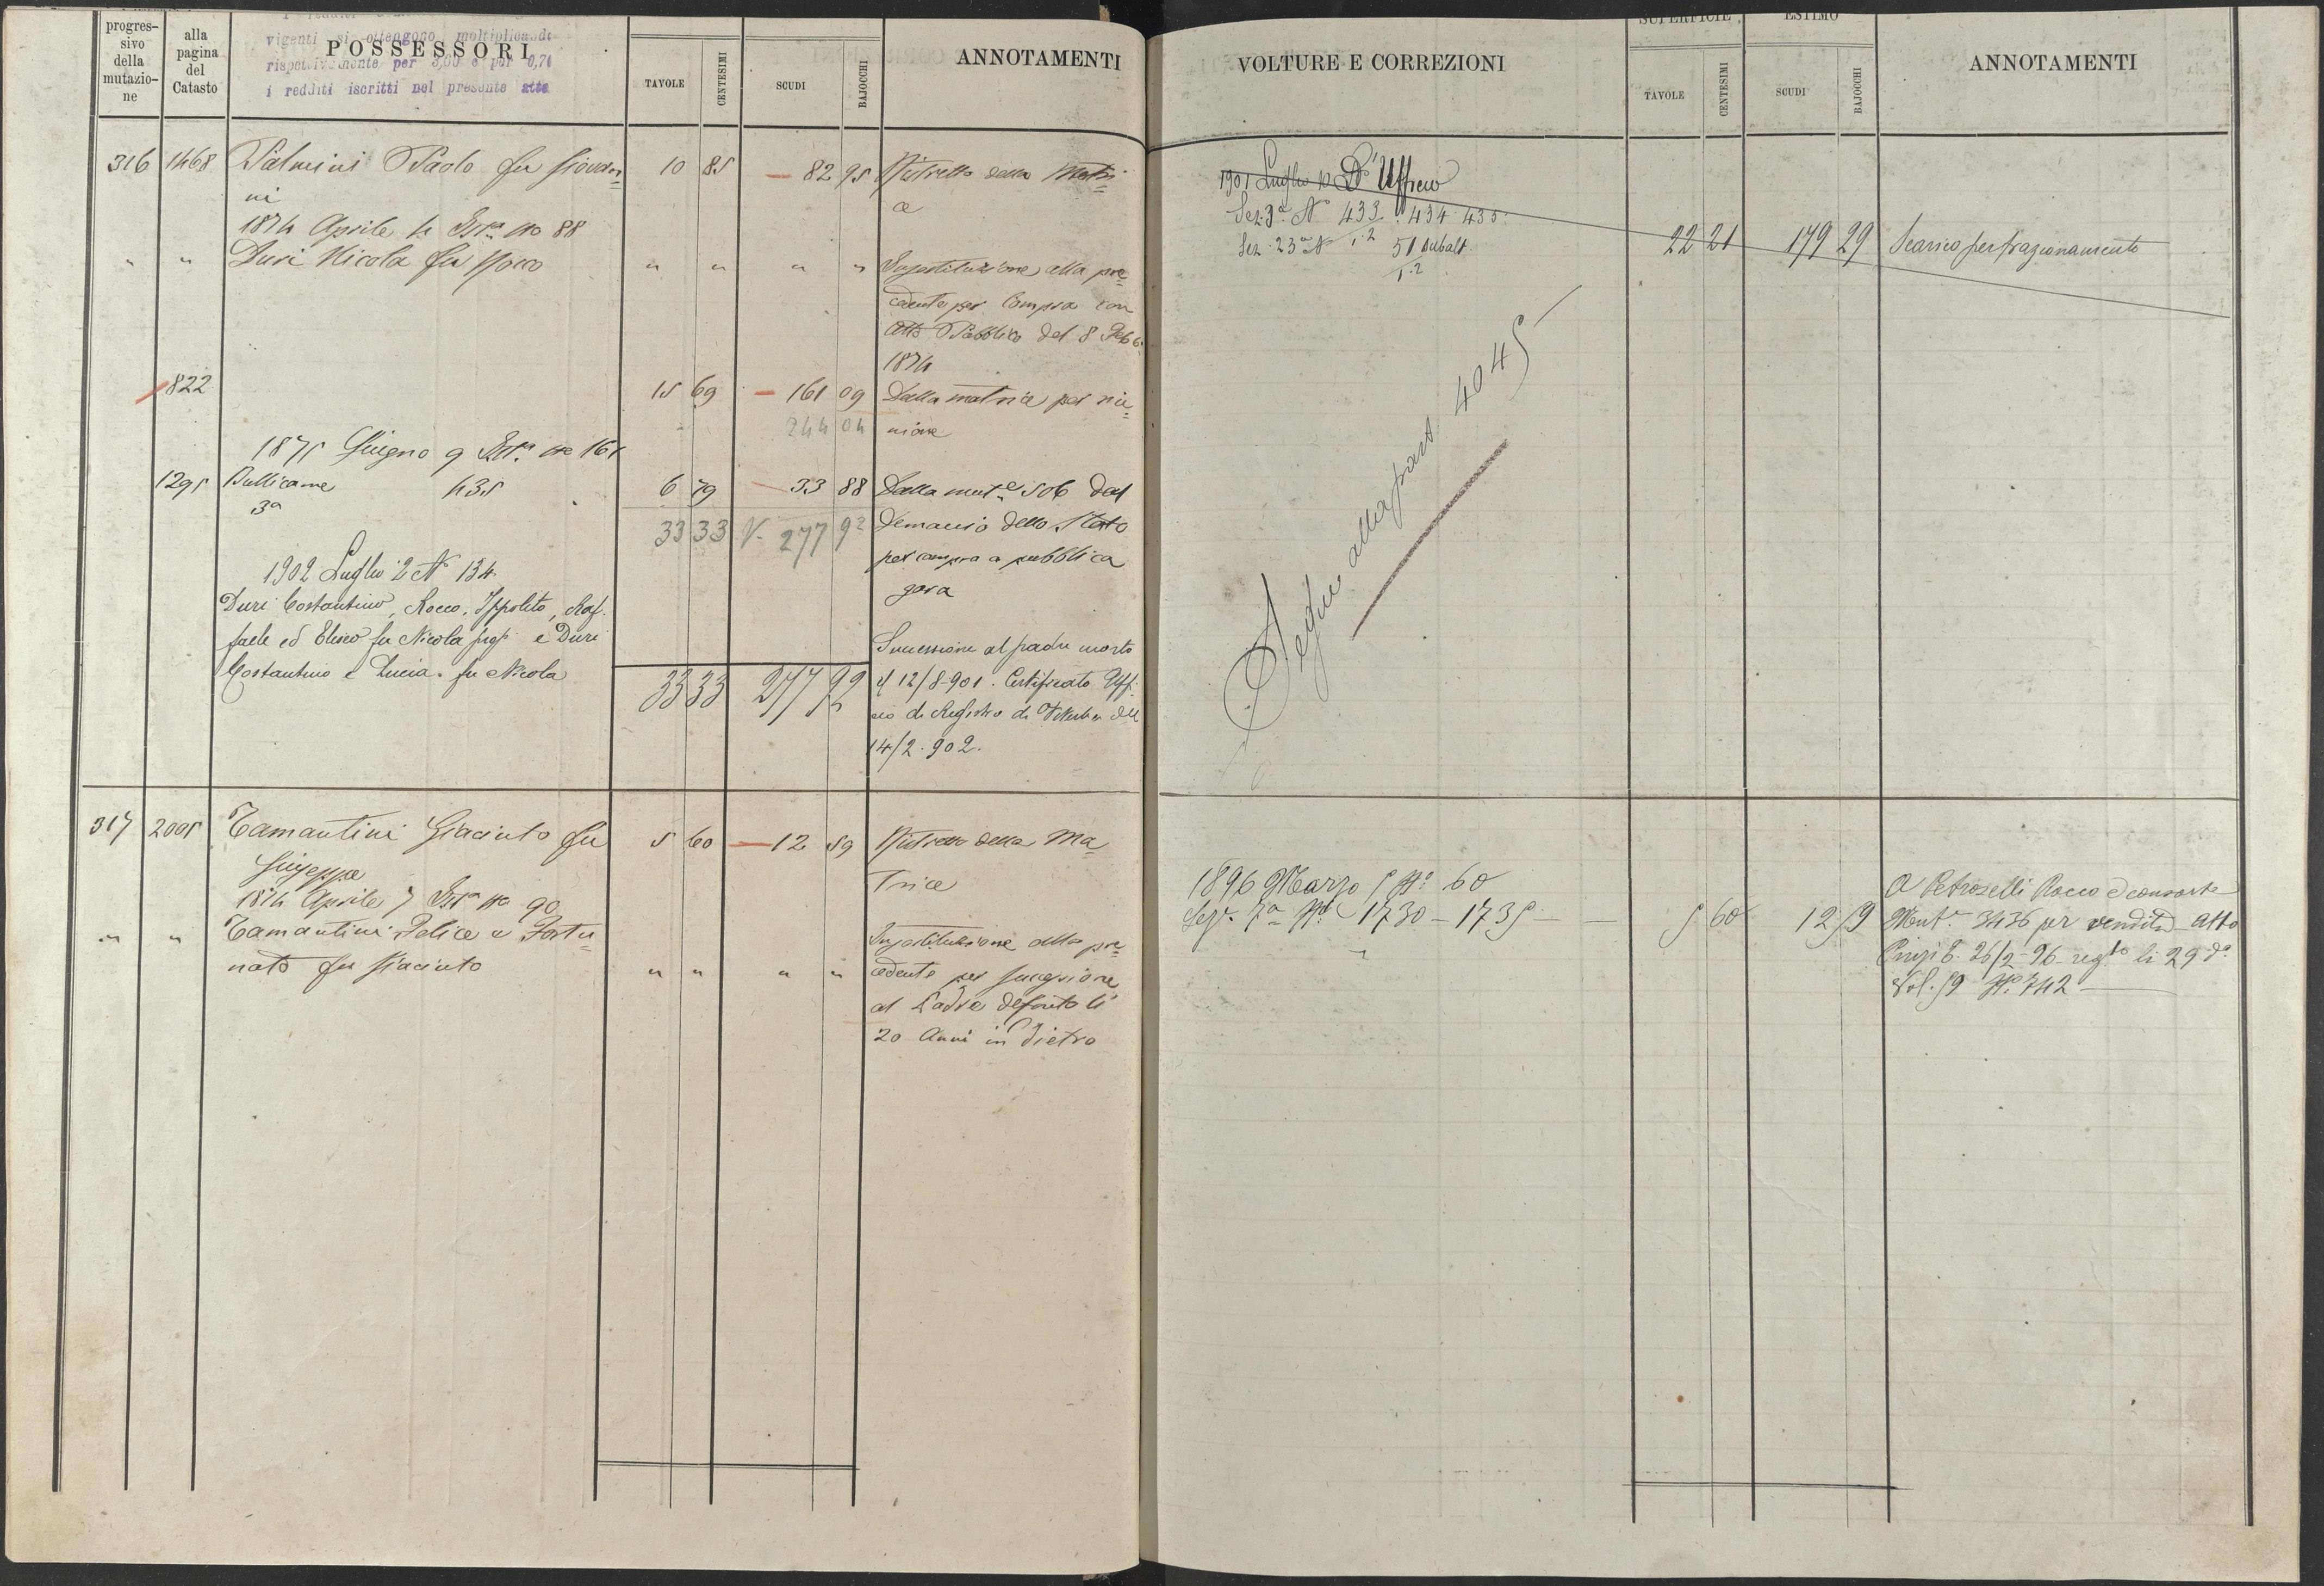 progres-
sivo
della
mutazio-
ne
alla
pagina
del
Catasto
POSSESSORI
vigenti si ottengono moltiplicando
rispettivamente per e per 0,70
i redditi iscritti nel presente
TAVOLE
CENTESIMI
SCUDI
BAJOCCHI
ANNOTAMENTI
316 1468 Palmini Paolo fu Giovan= 10 85 82 95 Ristretto della Matri=
ni ce
1874 Aprile 4 Ist.a No 88
" " Duri Nicola fu Rocco " " " " Sostituzione alla pre=
cedente per Compra con
Atto Pubblico del 8 Feb
1874
1822 15 69 161 09 Dalla matrice per riu=
244 04 nione
1875 Giugno 9 Ist.a No 161
1295 Bullicame 435 6 79 33 88 Dalla mut.e 506 dal
3a 33 33 277 92 Demanio dello Stato
per compra a pubblica
gara
1902 Luglio 2 N 134
Duri Costantino, Rocco, Ippolito, Raf-
faele ed Eliseo fu Nicola prop. e Duri
Costantino e Lucia fu Nicola
33 33 277 92
Successione al padre morto
il 12/8-901. Certificato Uffi-
cio di Registro di Viterbo del
14/2.902.
317 2005 Tamantini Giacinto fu 5 60 12 59 Ristretto della Ma=
Giuseppe trice
1874 Aprile 7 Ist.a No 90
" " Tamantini Felice e Fortu= " " " " Sostituzione alla pre=
nato fu Giacinto cedente per successione
al Padre defonto li
20 Anni in dietro
VOLTURE E CORREZIONI
SUPERFICIE
ESTIMO
TAVOLE
CENTESIMI
SCUDI
BAJOCCHI
ANNOTAMENTI
1901 Luglio 10 D'Ufficio
Sez. 3a N 433 434 435
1.2
Sez. 23a N 51 subalt. 22 21 179 29 Scarico per frazionamento
1.2
Segue alla part 4045
1896 Marzo 5 No 60
Sez. 7a Ni 1730 - 1735 5 60 12 59
A Petroselli Rocco e consorte
Mut.e 3436 per vendita atto
26/2-96 reg.to li 29 do
Vol. 59 No 742